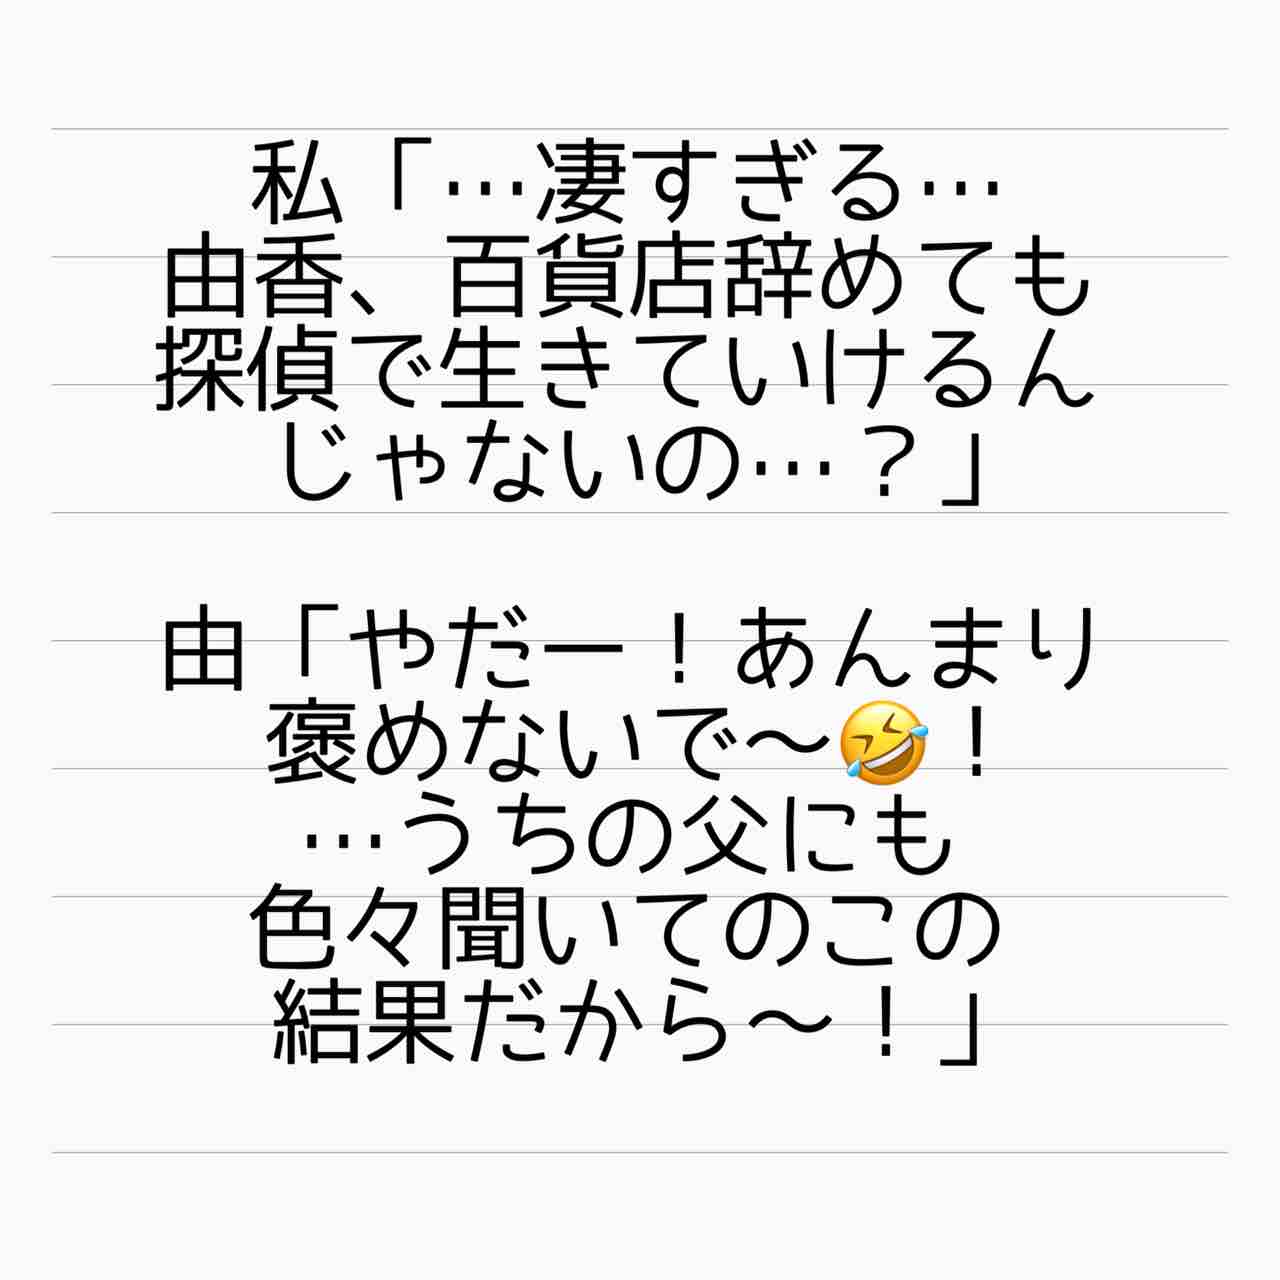 私「…凄すぎる…
由香、百貨店辞めても
探偵で生きていけるん
じゃないの…？」
由「やだー！あんまり
褒めないで〜🤣！
…うちの父にも
色々聞いてのこの
結果だから〜！」